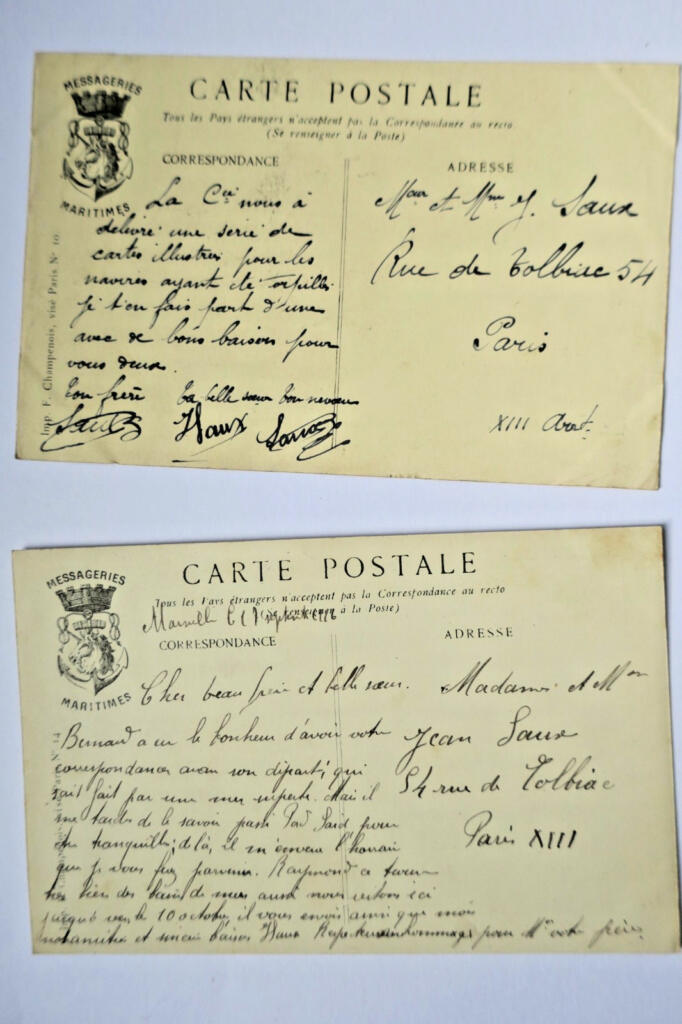 MESSAGERIES
MARITIMES
CARTE POSTALE
Tous les Pays étrangers n'acceptent pas la Correspondance au recto
(Se renseigner à la Poste)
CORRESPONDANCE
La Cie nous à
délivré une serie de
cartes illustrés pour les
navires ayant été torpillés
je t'en fais part d'une
avec de bons baisers pour
vous deux.
ton frère ta belle sœur ton neveu
Saux HSaux Saux
Imp. F. Champenois, visé Paris No 10
ADRESSE
Msieur et Mme J. Saux
Rue de Tolbiac 54
Paris
XIII Arrt.
MESSAGERIES
MARITIMES
CARTE POSTALE
Tous les Pays étrangers n'acceptent pas la Correspondance au recto
à la Poste)
Marseille le septembre 1916
CORRESPONDANCE
Cher beau frère et belle sœur.
Bernard a eu le bonheur d'avoir votre
correspondance avan son départ, qui
sait fait par une mer superbe. Mais il
me tarde de le savoir passé Pord Saïd pour
être tranquille; de là, il m'enverra l'horraire
que je vous ferez parvenir. Raymond a
très bien des bains de mer aussi nous restons ici
jusque vers le 10 octobre, il vous envoi ainsi que moi
nos amitiés et baisers HSaux hommages pour Mr votre frère.
ADRESSE
Madame et Mon
Jean Saux
54 rue de Tolbiac
Paris XIII